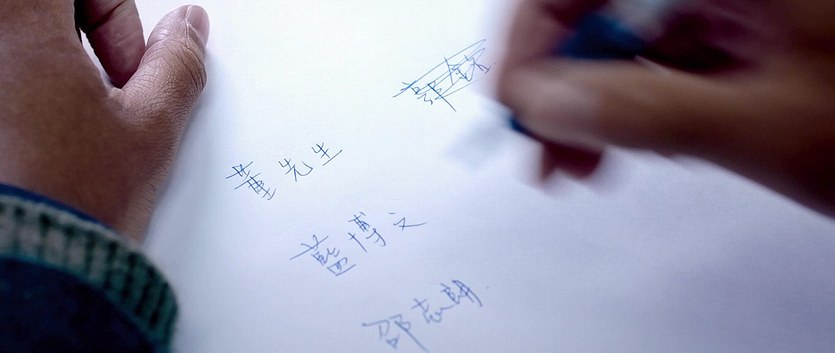 董先生
藍博文
邵志朗